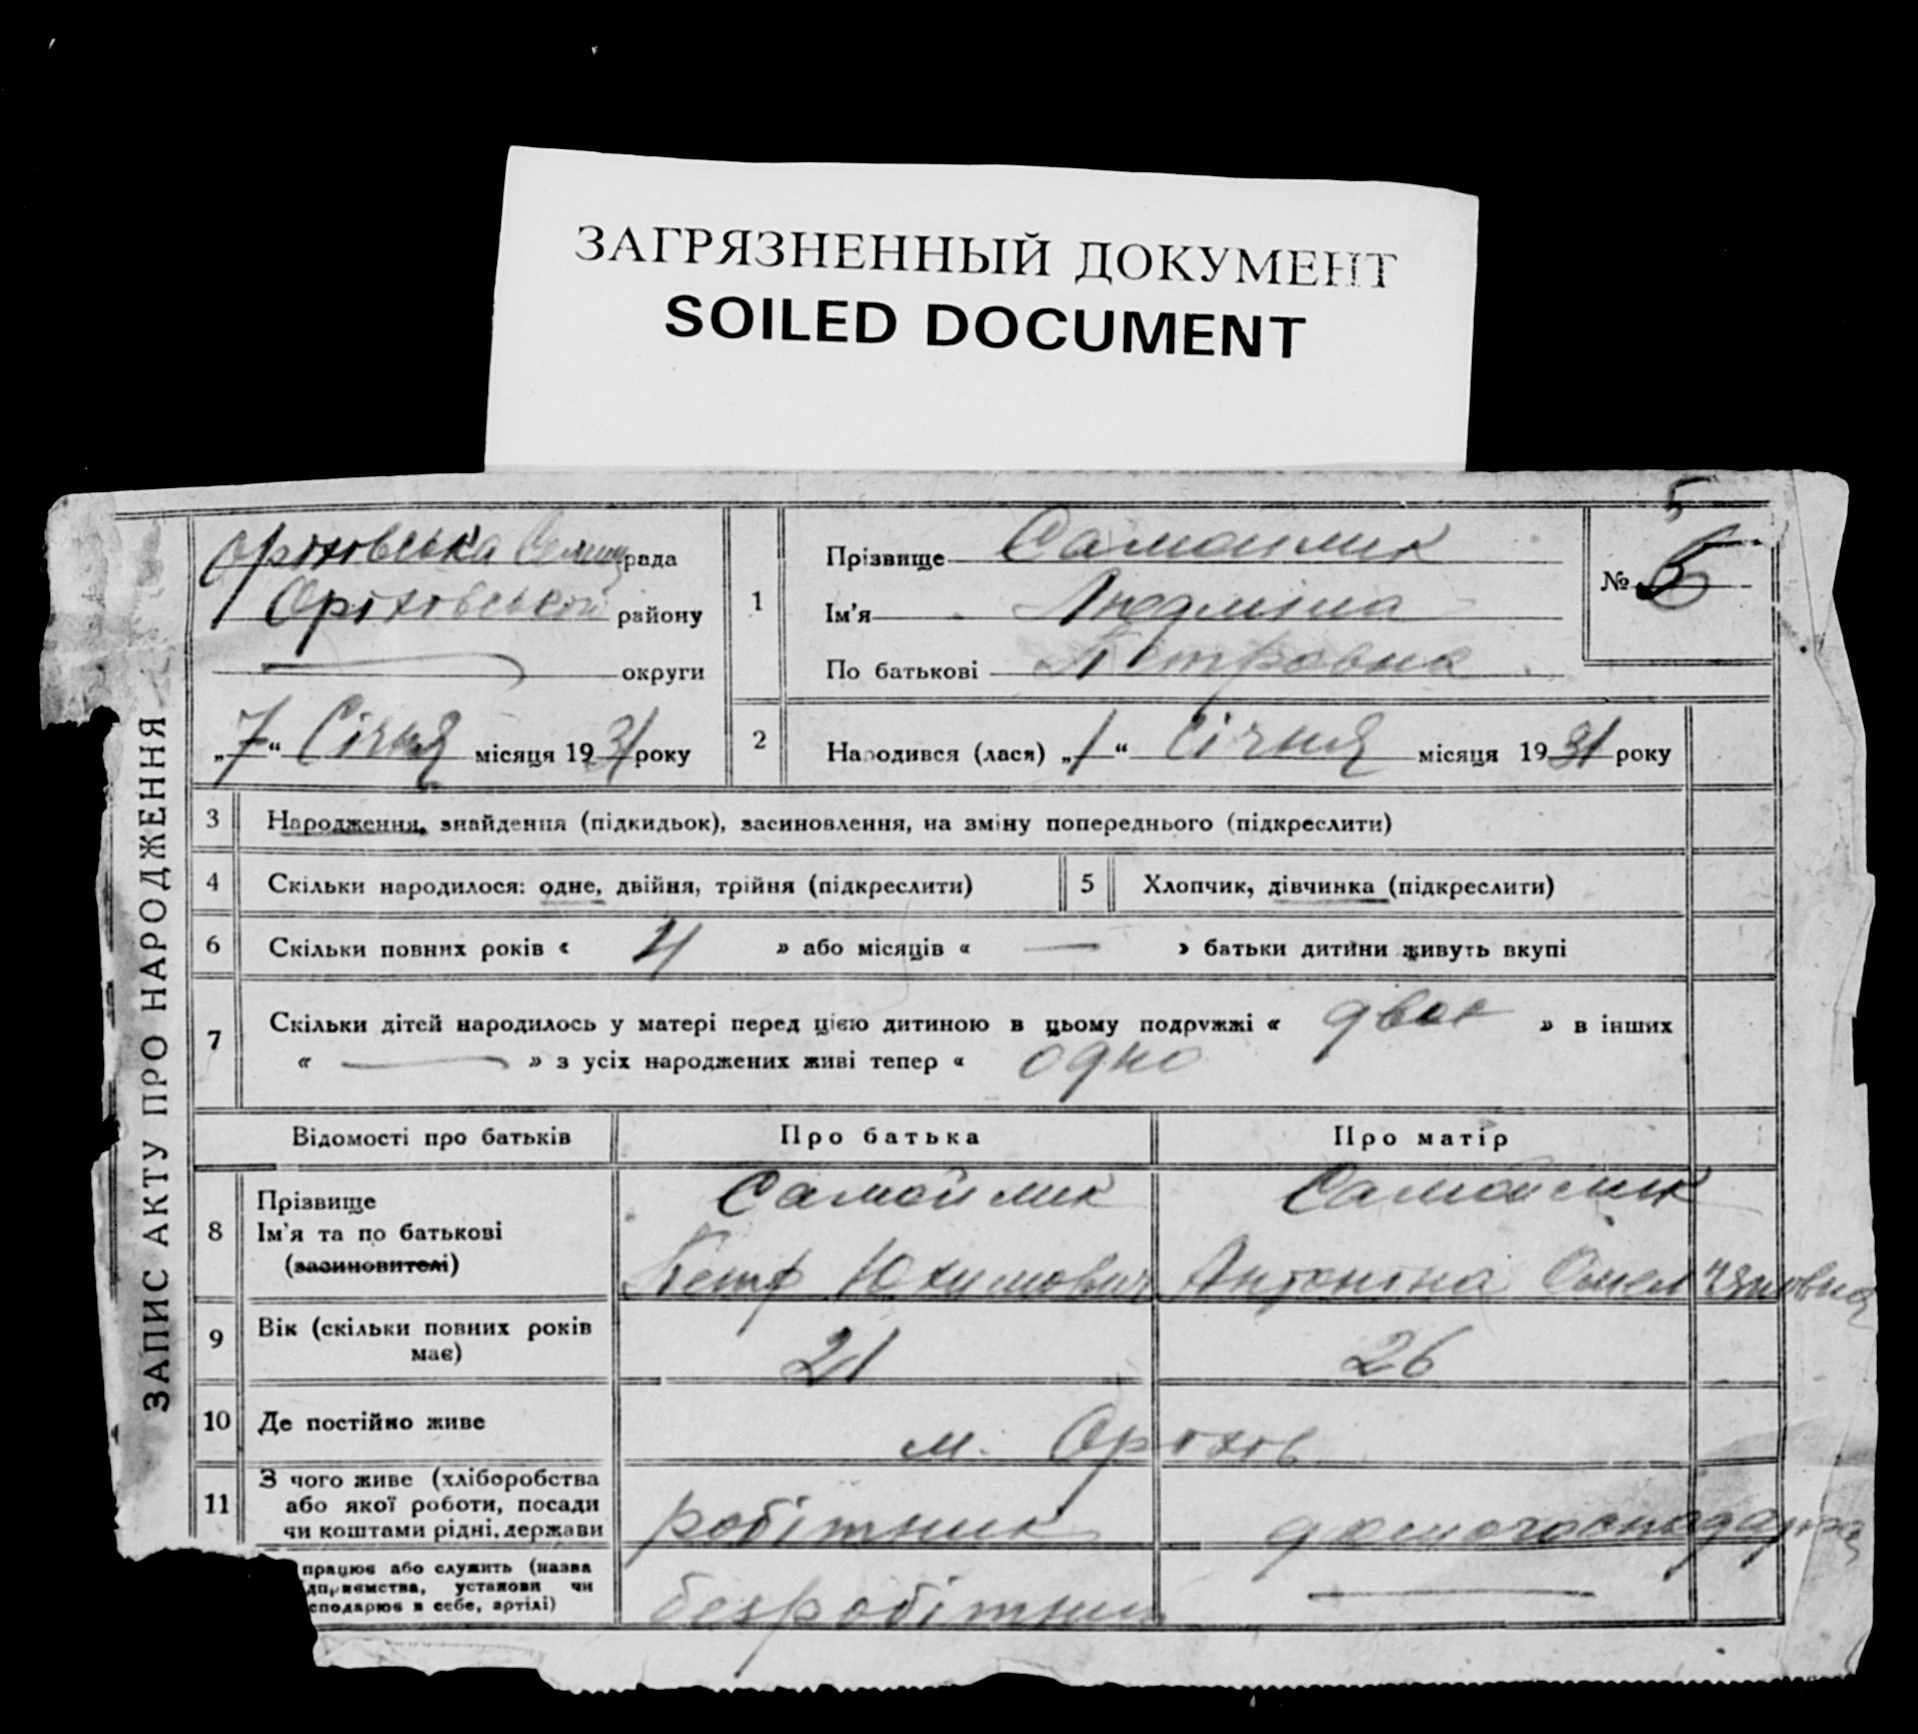 ЗАГРЯЗНЕННЫЙ ДОКУМЕНТ
SOILED DOCUMENT
ЗАПИС АКТУ ПРО НАРОДЖЕННЯ
Оріховська рада
Оріховський району
округи
„7“ Січня місяця 1931 року
1
Прізвище Самойлик
Ім'я Людміла
По батькові Петровна
№ 5
5
2 Народився (лася) „1“ Січня місяця 1931 року
3 Народження, знайдення (підкидьок), засиновлення, на зміну попереднього (підкреслити)
4 Скільки народилося: одне, двійня, трійня (підкреслити) 5 Хлопчик, дівчинка (підкреслити)
6 Скільки повних років « 4 » або місяців « — » батьки дитини живуть вкупі
7 Скільки дітей народилось у матері перед цією дитиною в цьому подружжі « двоє » в інших
« — » з усіх народжених живі тепер « одно
Відомості про батьків Про батька Про матір
8 Прізвище Самойлик Самойлик
Ім'я та по батькові
(засиновителі) Петр Юхимович Антоніна
9 Вік (скільки повних років
має) 21 26
10 Де постійно живе м. Оріхов
11 З чого живе (хліборобства
або якої роботи, посади
чи коштами рідні, держави робітник домогосподарка
працює або служить (назва
дприємства, установи чи
сподарює в себе, артілі) безробітний —